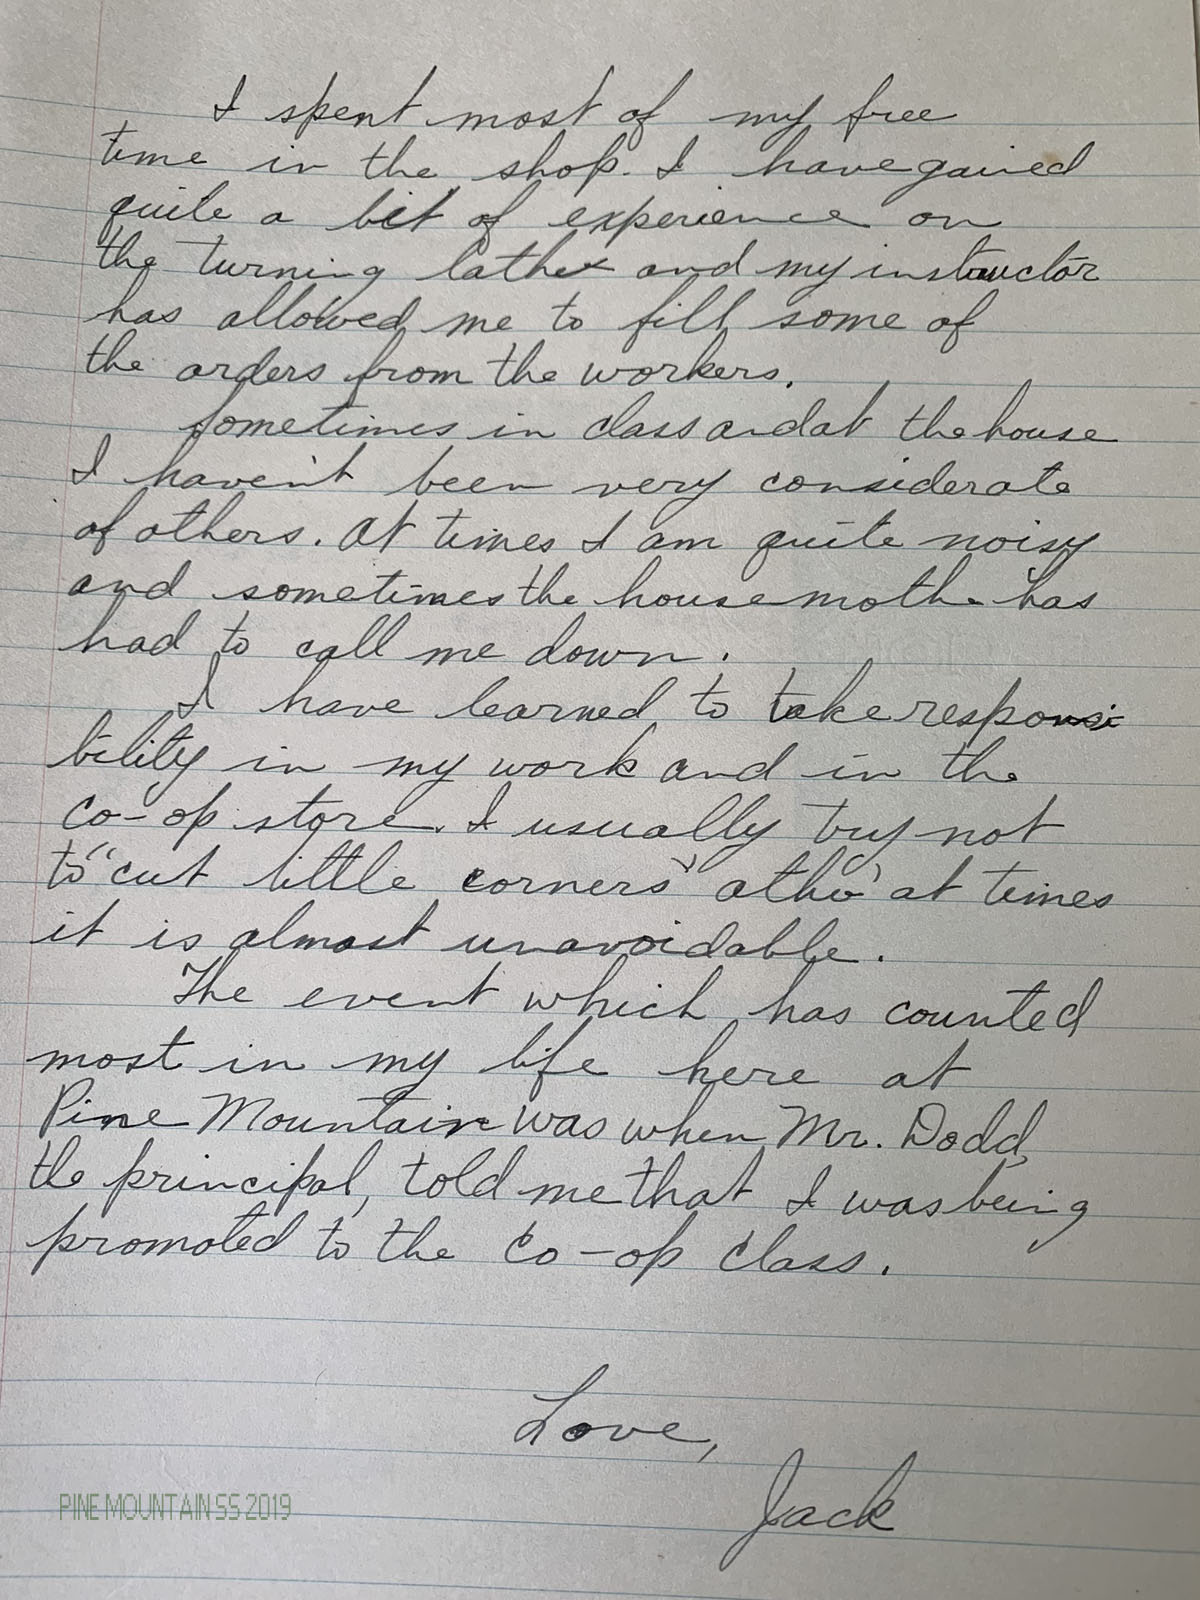 I spent most of my free
time in the shop. I have gained
quite a bit of experience on
the turning lathe and my instructor
has allowed me to fill some of
the orders from the workers.
Sometimes in class and at the house
I haven't been very considerate
of others. At times I am quite noisy
and sometimes the housemothe has
had to call me down.
I have learned to take responsi
bility in my work and in the
co-op store. I usually try not
to "cut little corners" altho' at times
it is almost unavoidable.
The event which has counted
most in my life here at
Pine Mountain was when Mr. Dodd,
the principal, told me that I was being
promoted to the Co-op class.
Love,
Jack
PINE MOUNTAIN SS 2019